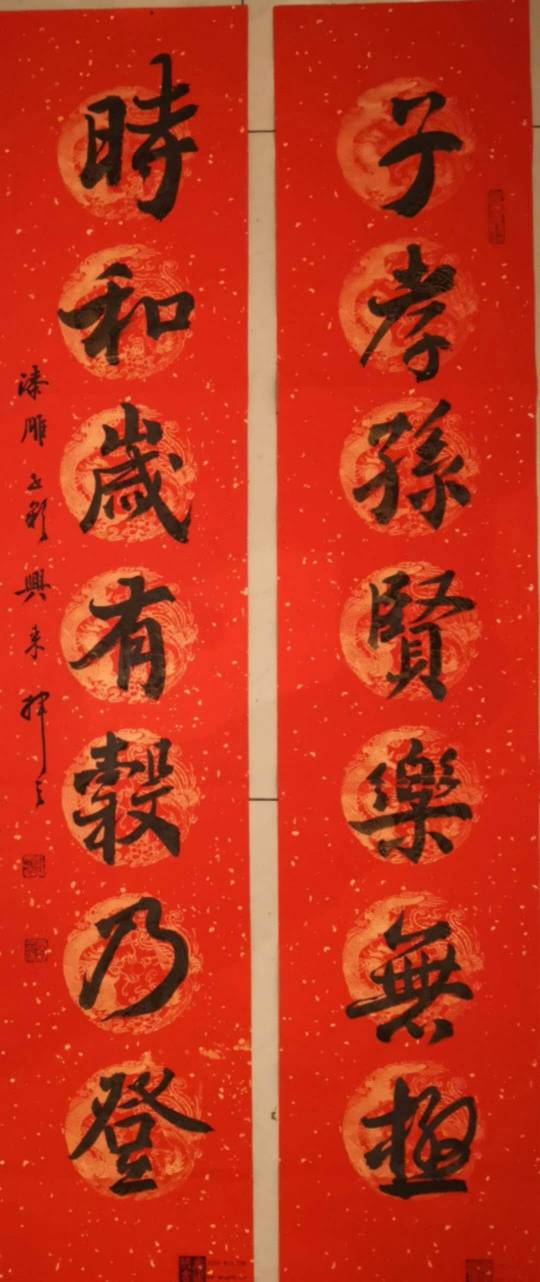 子孝孫賢樂無極
時和歲有穀乃登
漆雕
興來揮之